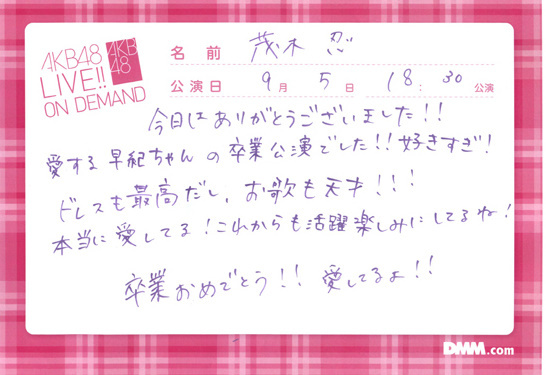 AKB48
LIVE!!
ON DEMAND
AKB
48
名前 茂木 忍
公演日 9月 5日 18:30公演
今日はありがとうございました!!
愛する早紀ちゃんの卒業公演でした!!好きすぎ!
ドレスも最高だし、お歌も天才!!!
本当に愛してる!これからも活躍楽しみにしてるね!
卒業おめでとう!! 愛してるよ!!
DMM.com